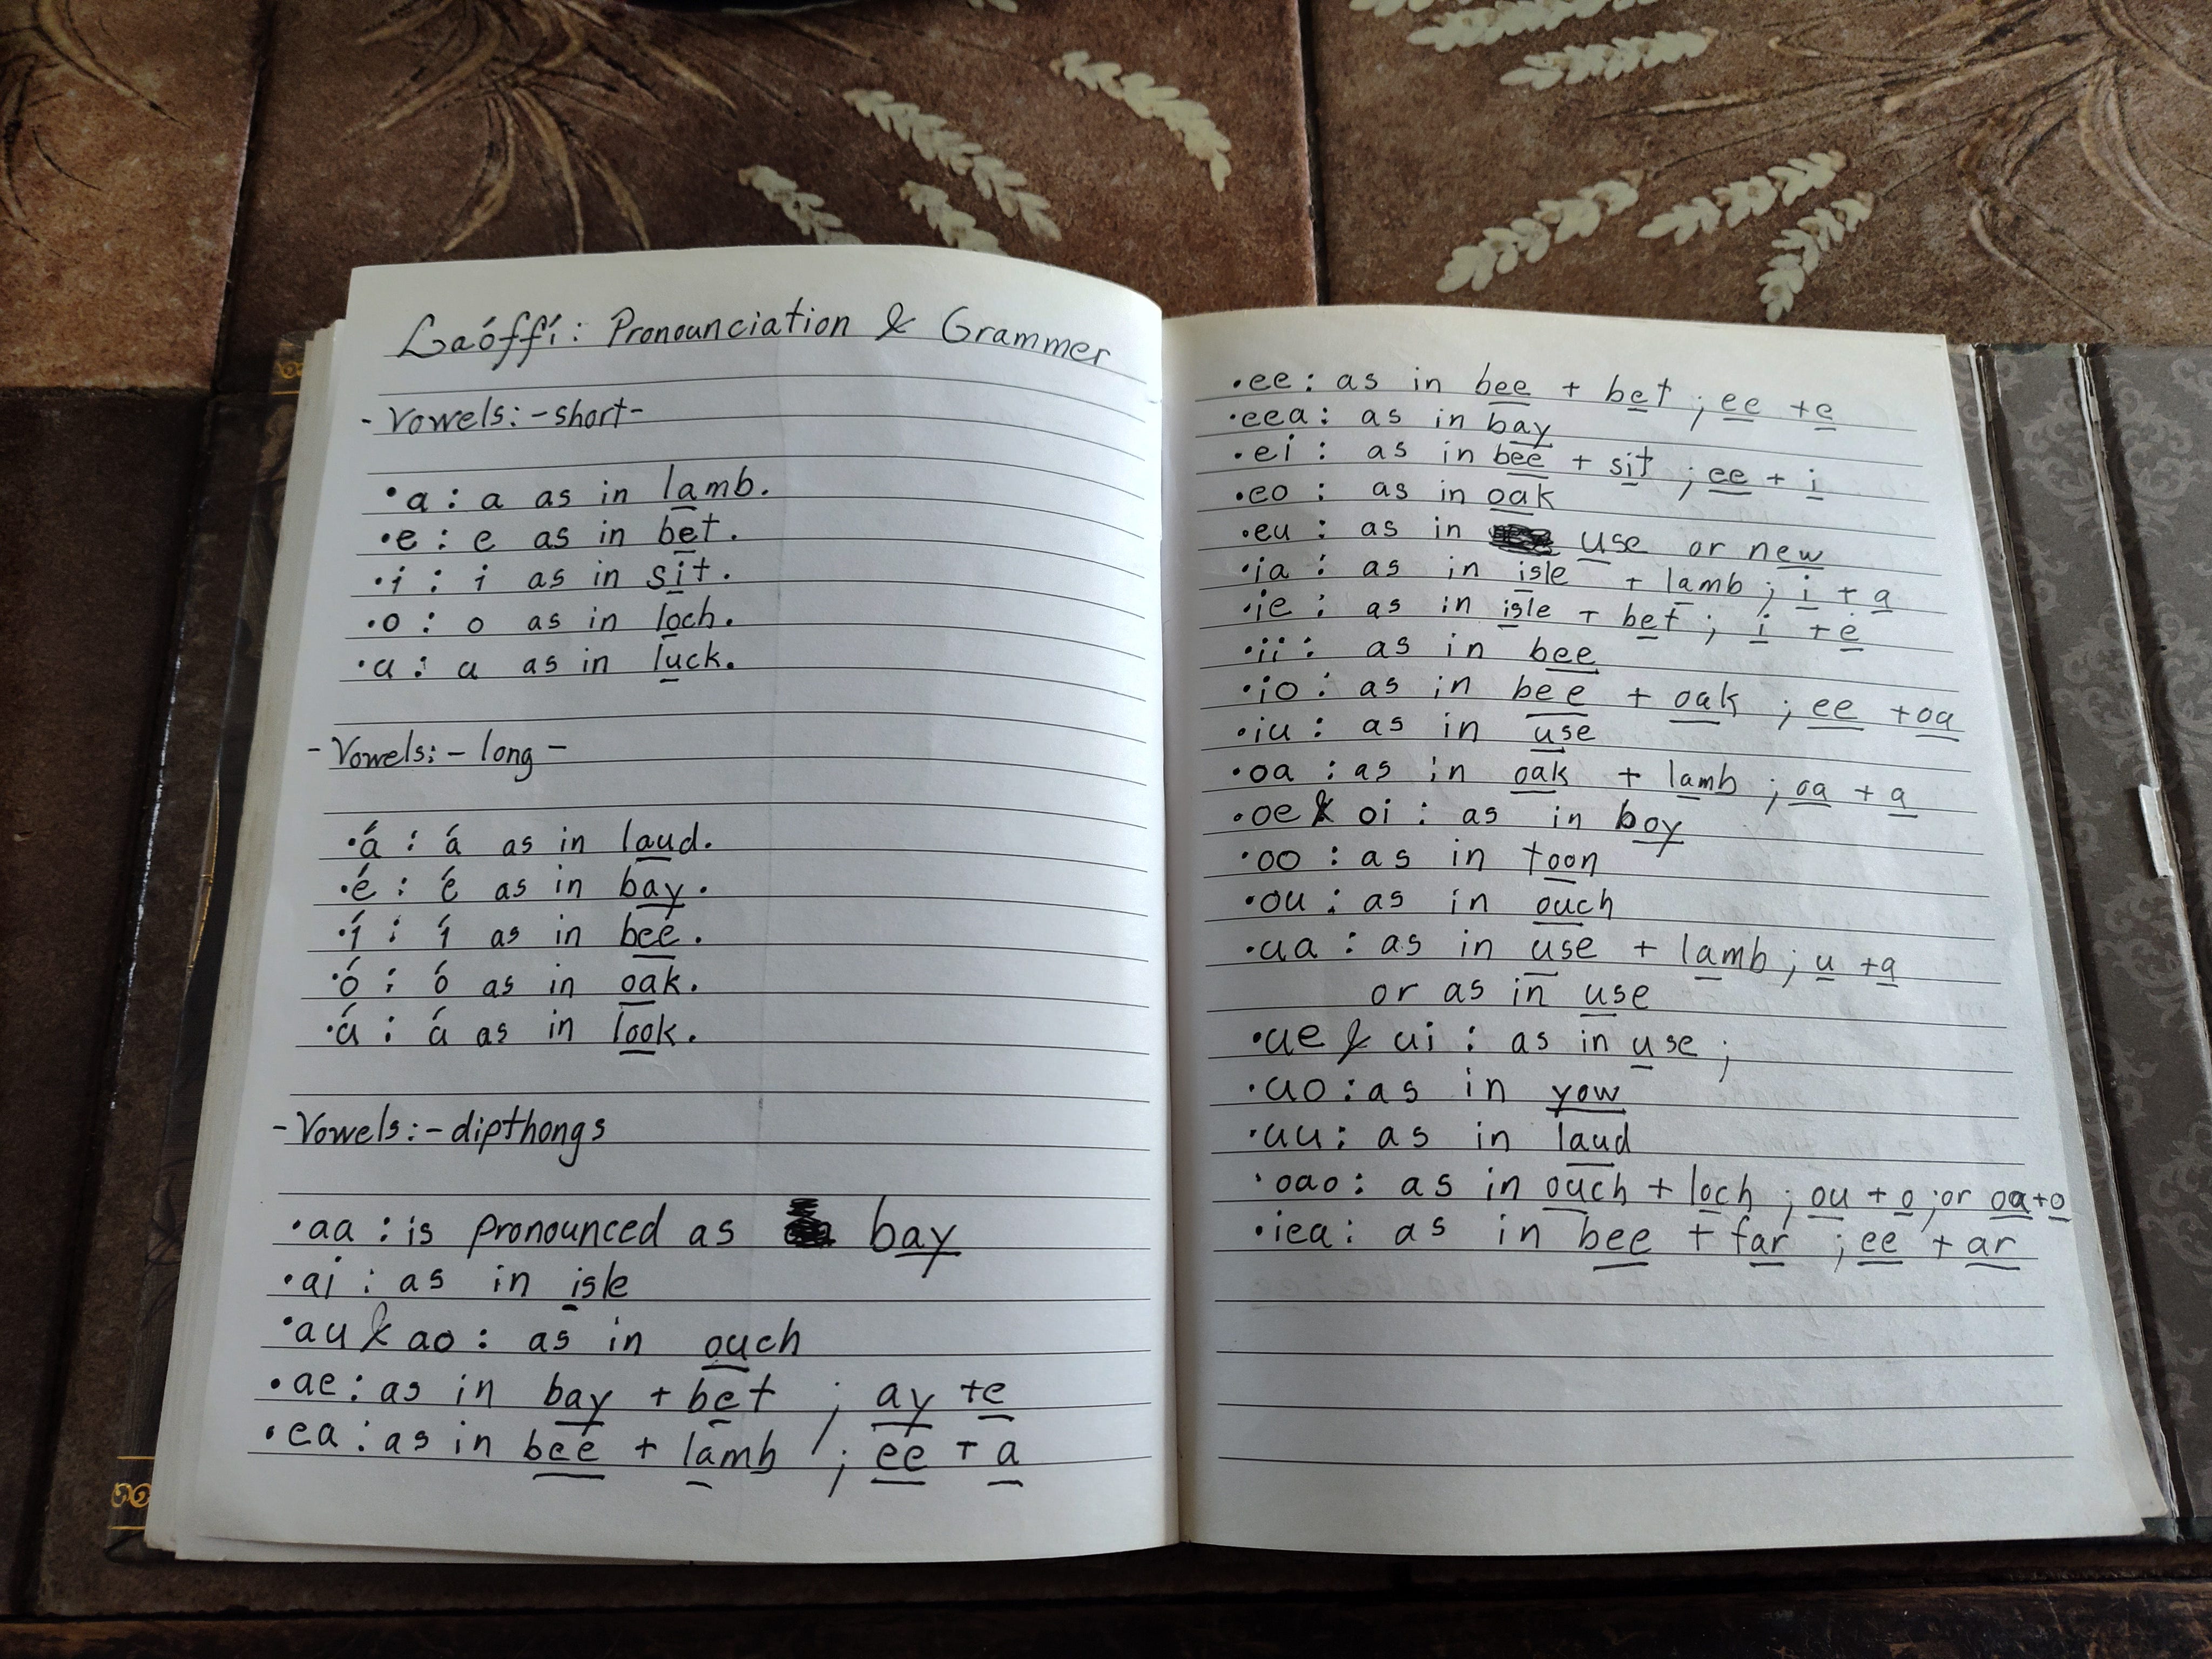 Laóffí: Pronounciation & Grammer
- Vowels: -short-
• a : a as in lamb.
• e : e as in bet.
• i : i as in sit.
• o : o as in loch.
• u : u as in luck.
- Vowels: - long -
• á : á as in laud.
• é : é as in bay.
• í : í as in bee.
• ó : ó as in oak.
• ú : ú as in look.
- Vowels: - dipthongs
• aa : is pronounced as bay
• ai : as in isle
• au & ao : as in ouch
• ae : as in bay + bet ; ay + e
• ea : as in bee + lamb ; ee + a
• ee : as in bee + bet ; ee + e
• eea : as in bay
• ei : as in bee + sit ; ee + i
• eo : as in oak
• eu : as in use or new
• ia : as in isle + lamb ; i + a
• ie : as in isle + bet ; i + e
• ii : as in bee
• io : as in bee + oak ; ee + oa
• iu : as in use
• oa : as in oak + lamb ; oa + a
• oe & oi : as in boy
• oo : as in toon
• ou : as in ouch
• ua : as in use + lamb ; u + a
or as in use
• ue & ui : as in use ;
• uo : as in yow
• uu : as in laud
• oao : as in ouch + loch ; ou + o ; or oa + o
• iea : as in bee + far ; ee + ar